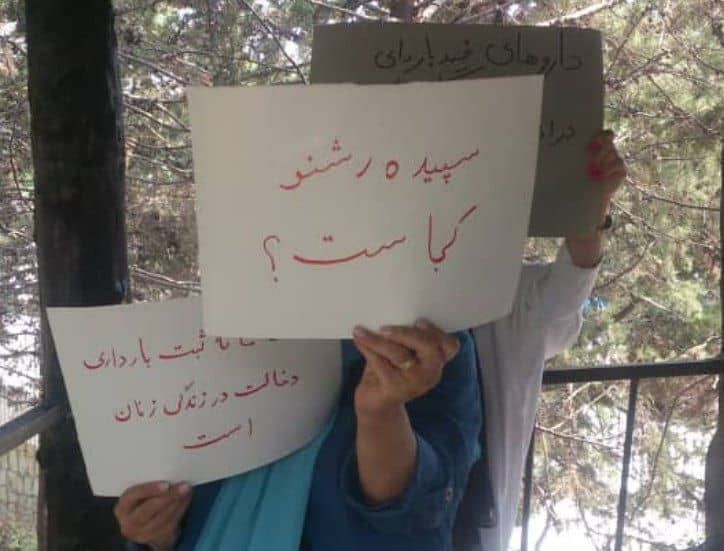 داروهای ضد بارداری
سپیده رشنو
کجاست؟
ثبت بارداری
دخالت در زندگی زنان
است